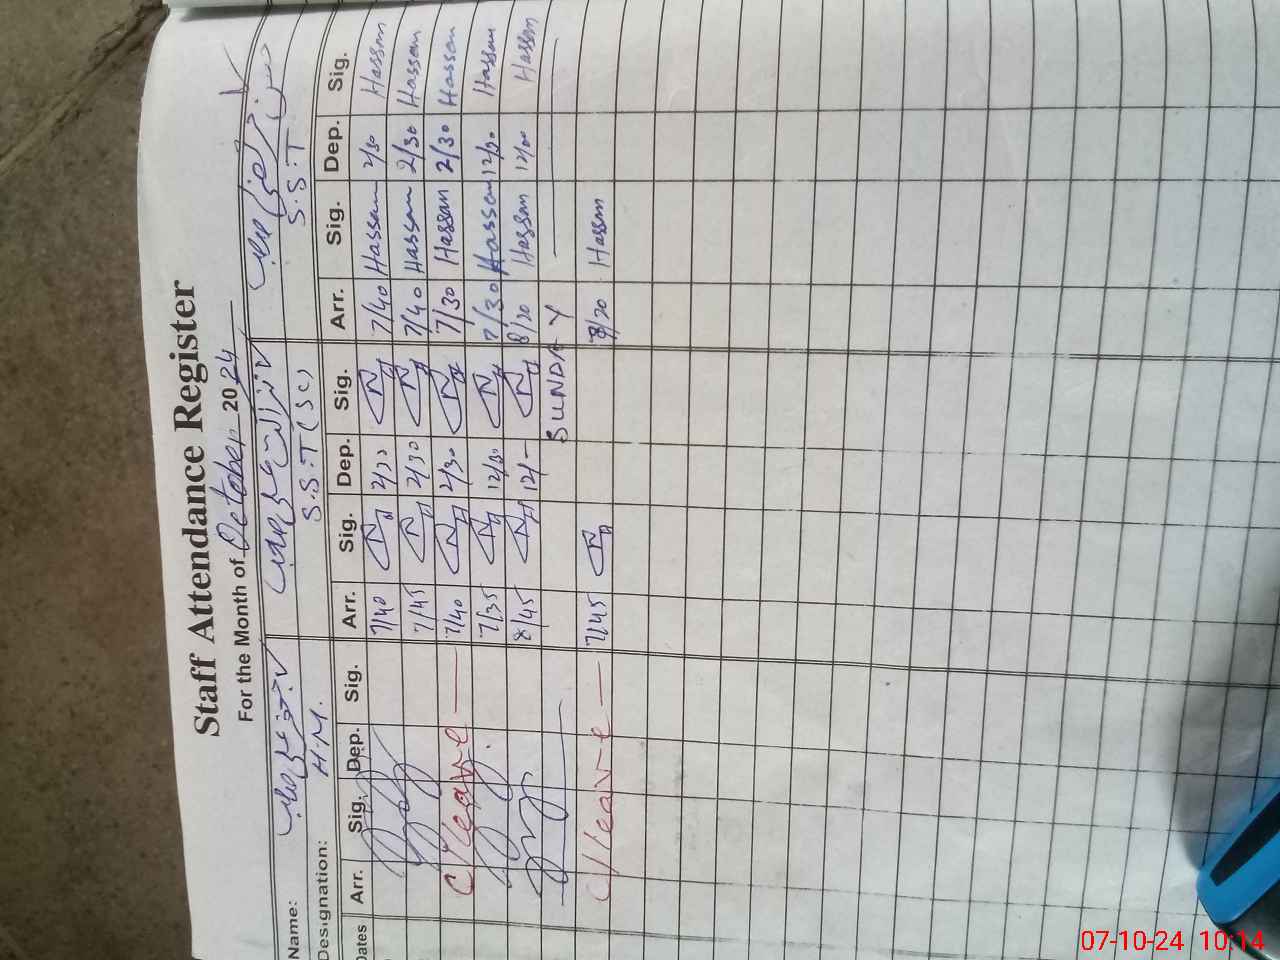 Staff Attendance Register
For the Month of October 2024
Name:
Designation: H.M. S.S.T (SC) S.S.T
Dates Arr. Sig. Dep. Sig. Arr. Sig. Dep. Sig. Arr. Sig. Dep. Sig.
7/40 2/30 7/40 Hassan 2/30 Hassan
7/45 2/30 7/40 Hassan 2/30 Hassan
C/leave 7/40 2/30 7/30 Hassan 2/30 Hassan
7/35 12/30 7/30 Hassan 12/30 Hassan
8/45 12/- 8/20 Hassan 12/00 Hassan
SUNDAY
C/leave 7/45 8/20 Hassan
07-10-24 10:14